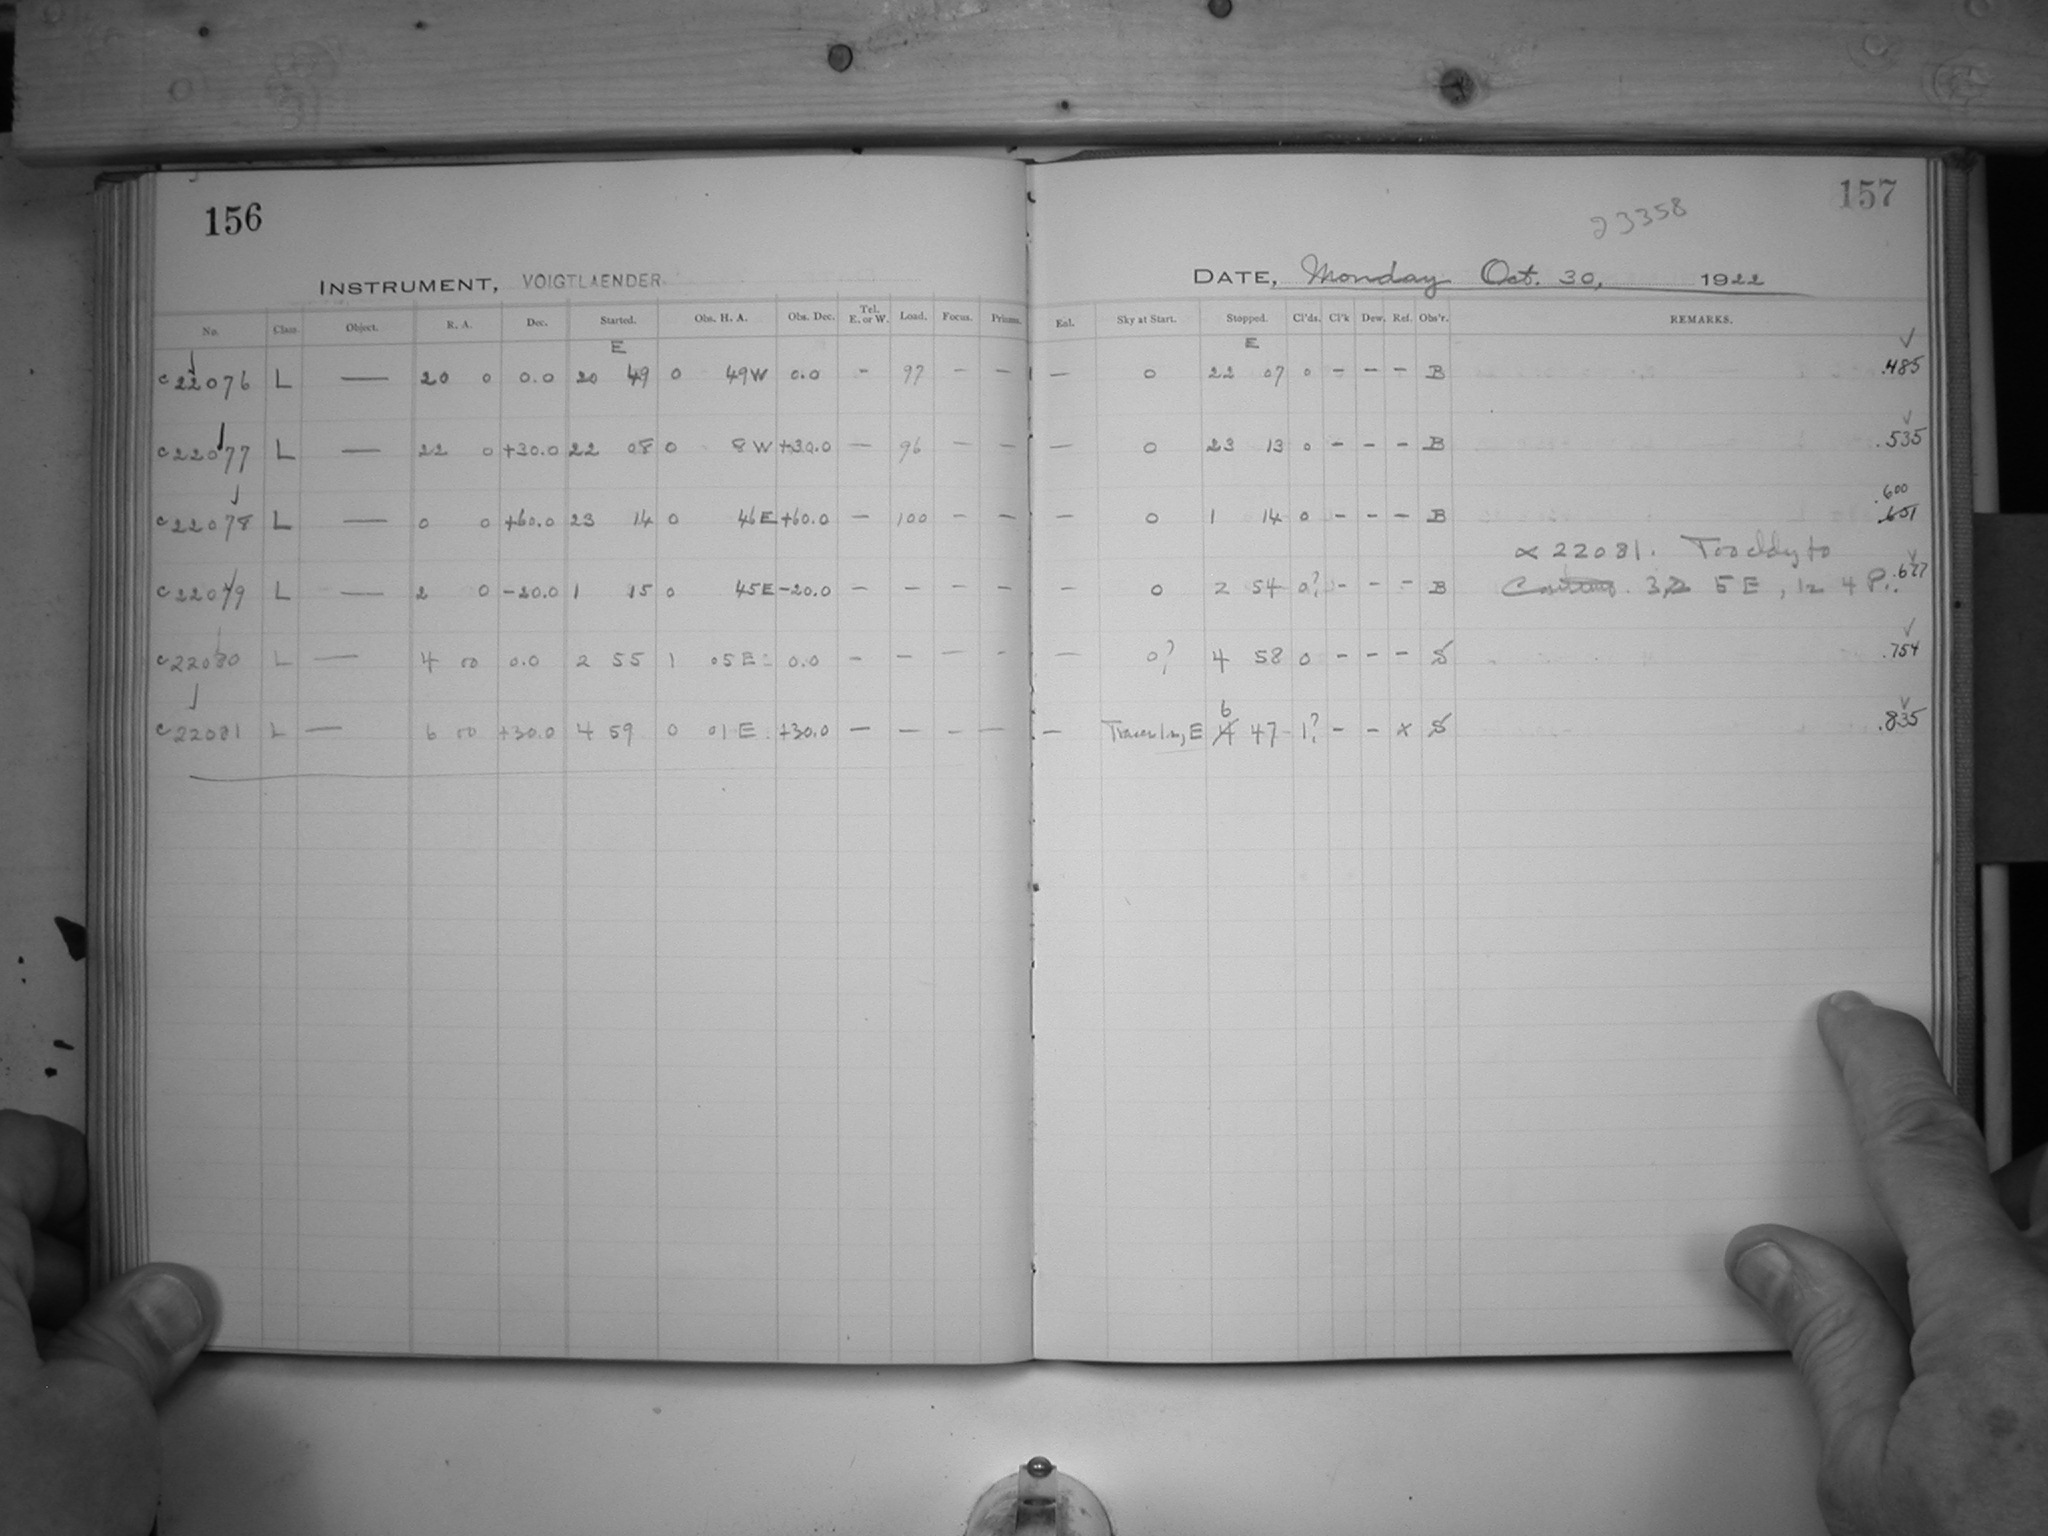 156
157
23358
INSTRUMENT, VOIGTLAENDER.
DATE, Monday Oct. 30, 1922
No. Class. Object. R. A. Dec. Started. Obs. H. A. Obs. Dec. Tel. E. or W. Load. Focus. Prisms. Enl. Sky at Start. Stopped. Cl'ds. Cl'k Dew. Ref. Obs'r. REMARKS.
E E
c22076 L — 20 0 0.0 20 49 0 49W 0.0 - 97 - - — 0 22 07 0 - - - B .485
c22077 L — 22 0 +30.0 22 08 0 8W +30.0 — 96 - - — 0 23 13 0 - - - B .535
.600
c22078 L — 0 0 +60.0 23 14 0 46E +60.0 - 100 - - — 0 1 14 0 - - - B .601
∝ 22081. Too cldy to
c22079 L — 2 0 -20.0 1 15 0 45E -20.0 - - - - - 0 2 54 0? - - - B 5E, 12 4 P. .677
c22080 L — 4 00 0.0 2 55 1 05E 0.0 - - - - — 0? 4 58 0 - - - S .754
6
c22081 L — 6 00 +30.0 4 59 0 01E +30.0 — - - — — E 4 47 1? - - x S .835